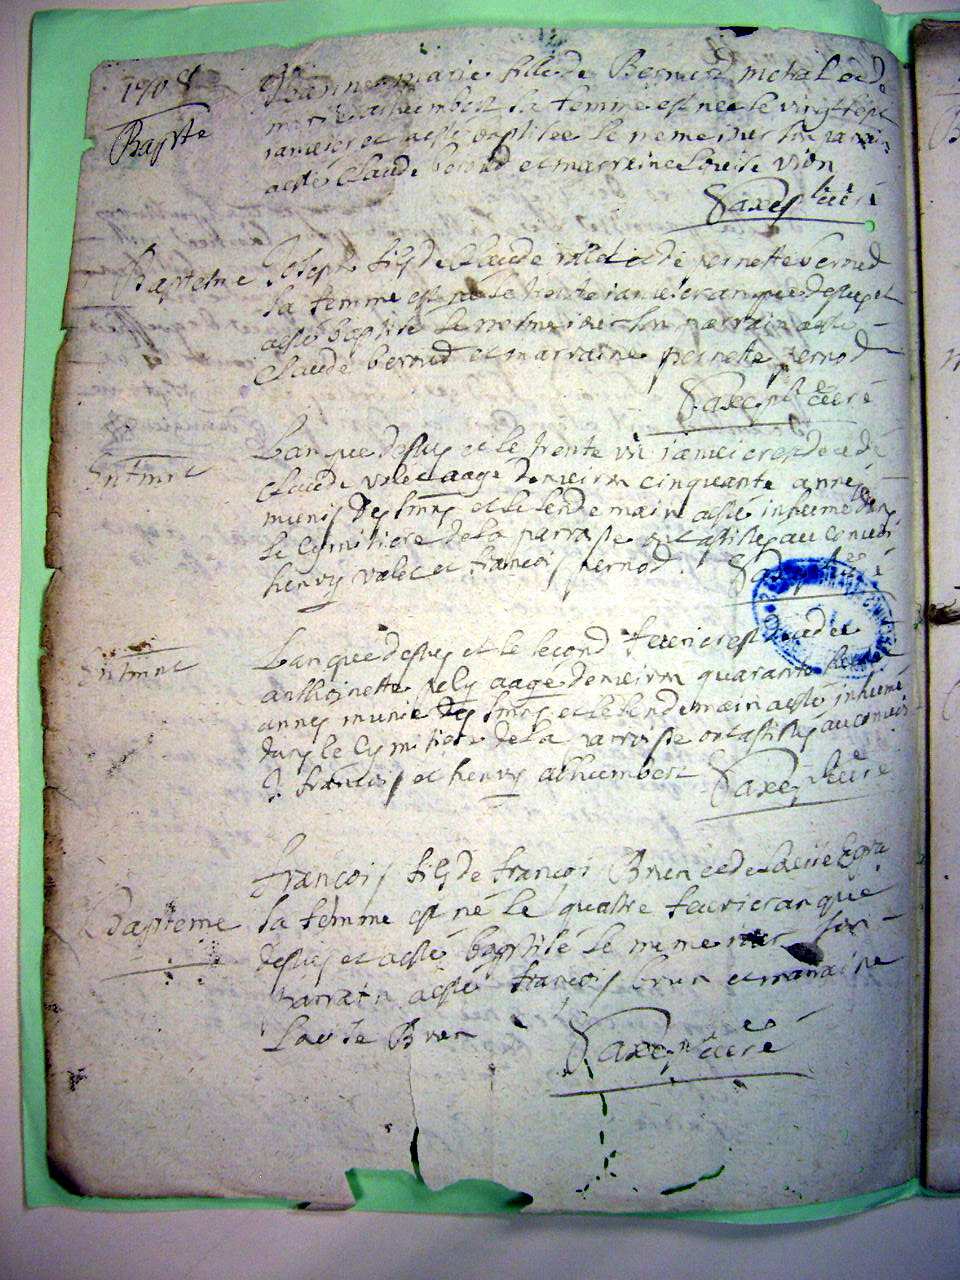 1708
Bapte
Jeanne marie fille de Benoit mchal et de
marie alhumbert sa femme est nee le vingt sept
ianvier et a esté baptisee le meme iour son parain
a esté Claude bernd et marraine Louise vion
Saxe ptre curé
Bapteme
Joseph fils de Claude valet et de pernette bernud
sa femme est né le trente ianvier an que dessus et
a esté baptisé le meme iour son parrain a esté
Claude bernud et marraine pernette pernod
ptre curé
Entmnt
L'an que dessus et le trente un ianvier est decedé
Claude valet aagé d'environ cinquante annes
munis des smns et le lendemain a esté inhumé dans
le cymitiere de la parroisse ont assistes au convoi
henry valet et françois pernod.
Entmnt
L'an que dessus et le second feuvrier est decedee
anthoinette pely aagé d'environ quarante
annes munie des smns et le lendemain a esté inhumé
dans le Cymitiere de la parroisse ont assistes au convoi
françois et henry alhumbert
ptre curé
Bapteme
françois fils de françois Brun et de
sa femme est né le quatre feuvrier an que
dessus et a esté baptisé le meme iour son
parrain a esté françois brun et marraine
Brun
ptre curé